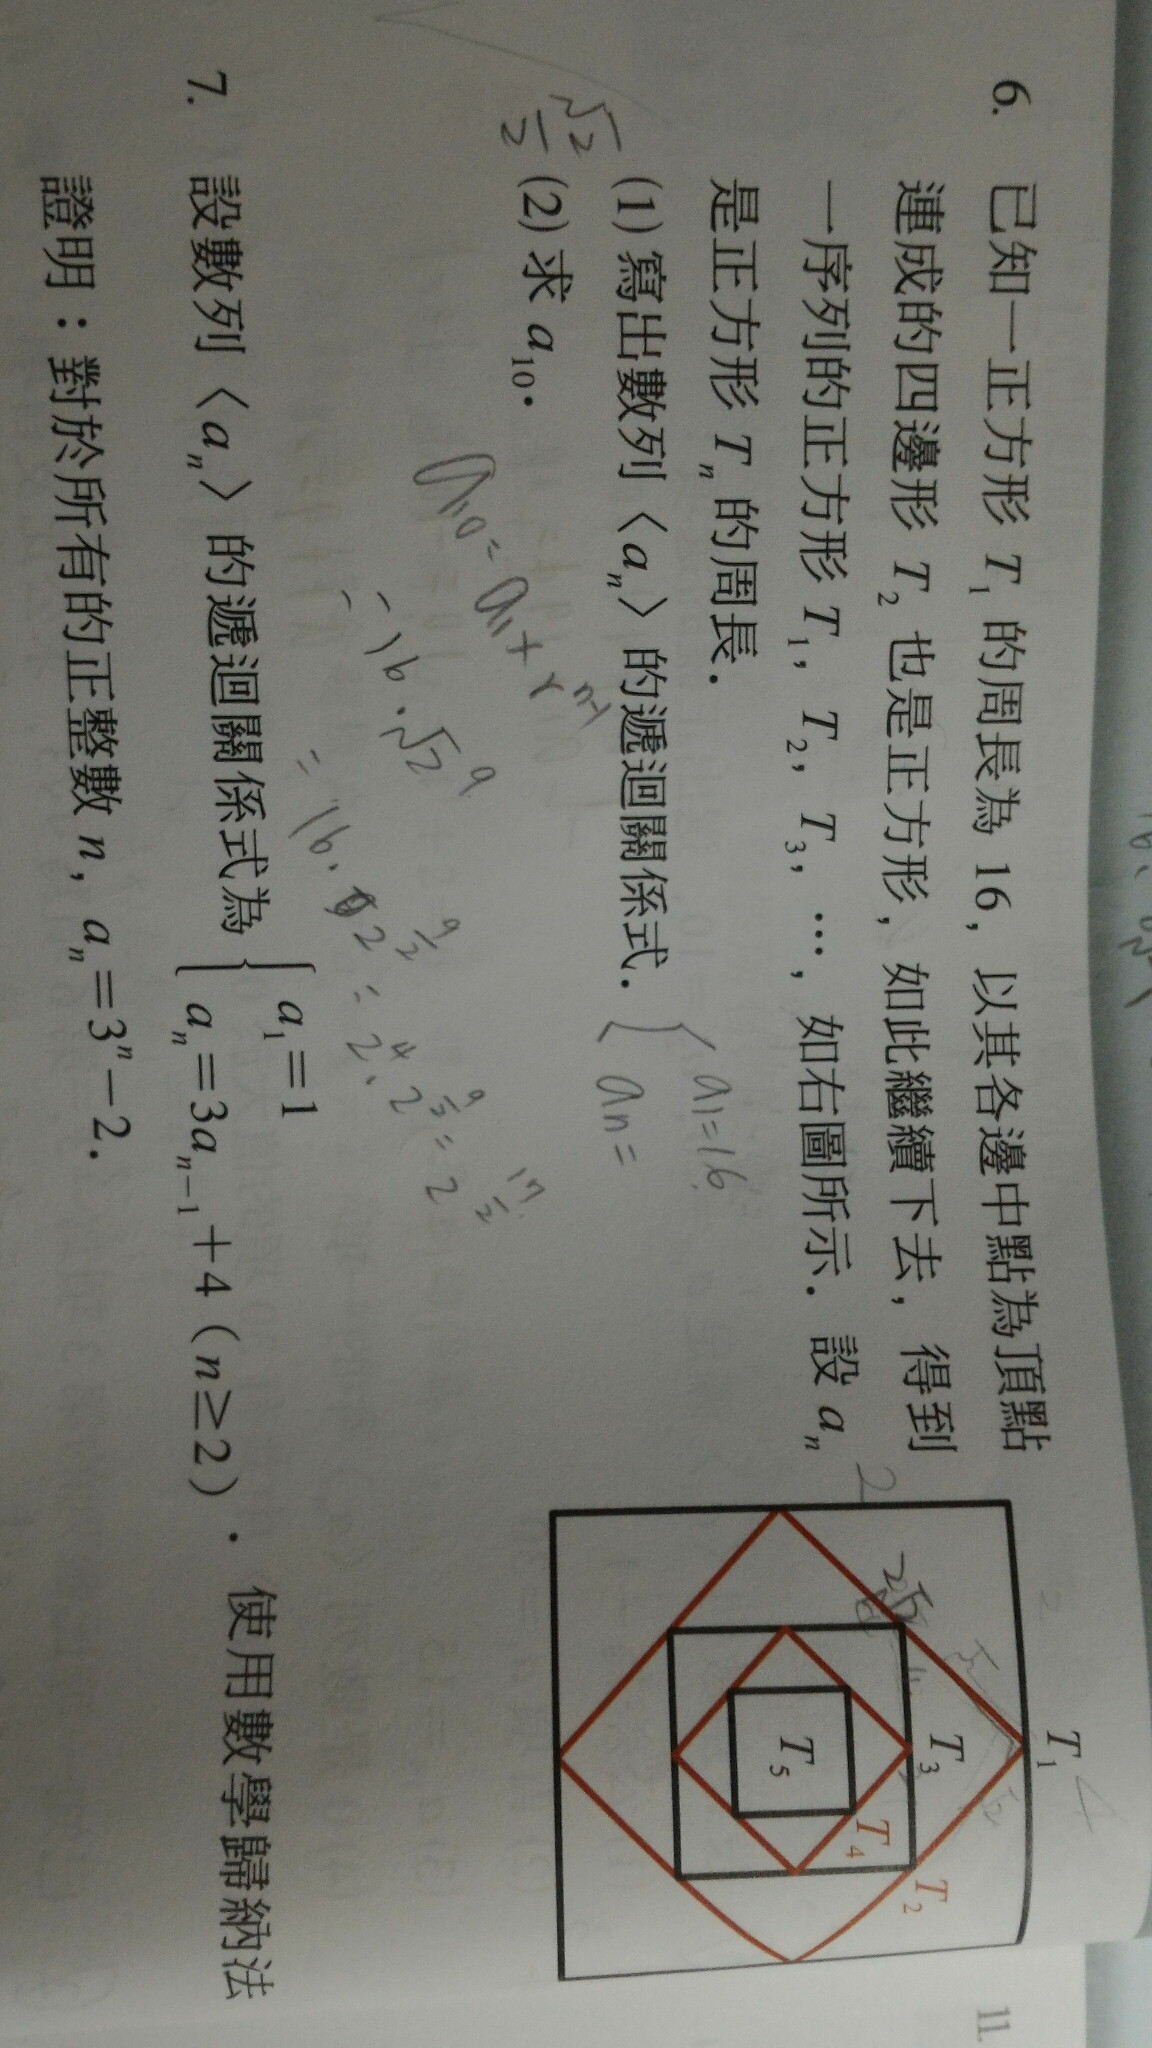 6. 已知一正方形 T₁ 的周長為 16，以其各邊中點為頂點
連成的四邊形 T₂ 也是正方形，如此繼續下去，得到
一序列的正方形 T₁，T₂，T₃，…，如右圖所示．設 aₙ
是正方形 Tₙ 的周長．
(1) 寫出數列〈aₙ〉的遞迴關係式．
{ a₁=16
aₙ=
√2/2
(2) 求 a₁₀．
a₁₀=a₁+rⁿ⁻¹
=16·√2⁹
=16·2^(9/2)=2⁴·2^(9/2)=2^(17/2)
T₁
4
T₃
T₂
T₄
T₅
2
7. 設數列〈aₙ〉的遞迴關係式為 { a₁=1
aₙ=3aₙ₋₁+4（n≥2）．使用數學歸納法
證明：對於所有的正整數 n，aₙ=3ⁿ−2．
11.